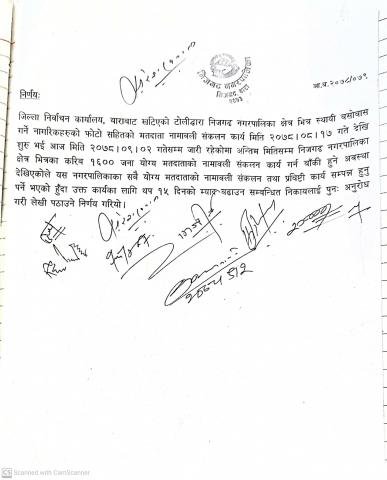 निजगढ नगरपालिका
निजगढ, बारा
२०७३
आ.व.२०७८/०७९
निर्णयः
जिल्ला निर्वाचन कार्यालय, बाराबाट खटिएको टोलीद्वारा निजगढ नगरपालिका क्षेत्र भित्र स्थायी बसोबास
गर्ने नागरिकहरुको फोटो सहितको मतदाता नामावली संकलन कार्य मिति २०७८।०८।१७ गते देखि
शुरु भई आज मिति २०७८।०९।०२ गतेसम्म जारी रहेकोमा अन्तिम मितिसम्म निजगढ नगरपालिका
क्षेत्र भित्रका करिब १६०० जना योग्य मतदाताको नामावली संकलन कार्य गर्न बाँकी हुने अवस्था
देखिएकोले यस नगरपालिकाका सबै योग्य मतदाताको नामावली संकलन तथा प्रविष्टी कार्य सम्पन्न हुनु
पर्ने भएको हुँदा उक्त कार्यका लागि थप १५ दिनको म्याद बढाउन सम्बन्धित निकायलाई पुनः अनुरोध
गरी लेखी पठाउने निर्णय गरियो।
CS Scanned with CamScanner